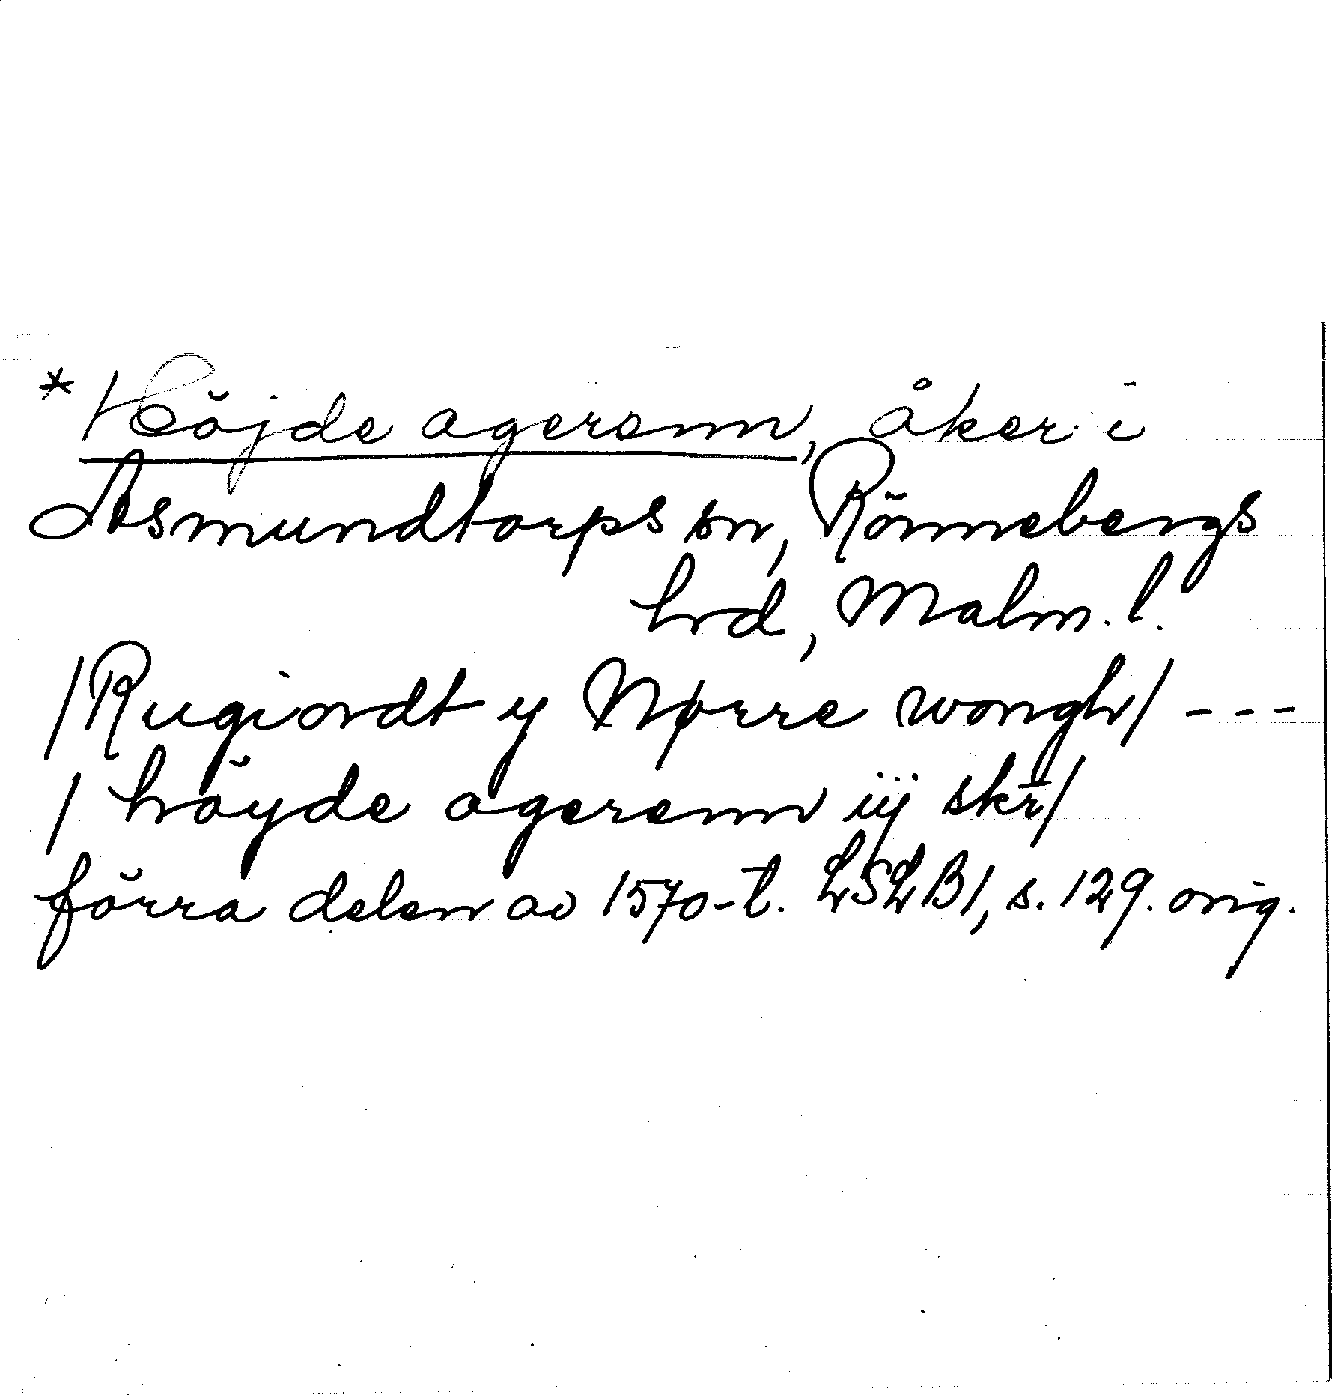 *Höjde agerenn, åker i
Asmundtorps sn, Rönnebergs
hrd, Malm. l.
/Rugiordt y Nørre wongh/ ---
/ höyde agerenn iij skr/
förra delen av 1570-t. LSLB1, s. 129. orig.